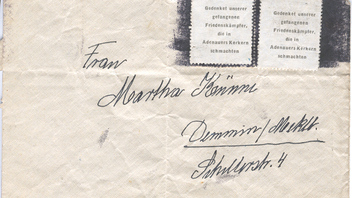 Gedenket unserer
gefangenen
Friedenskämpfer,
die in
Adenauers Kerkern
schmachten
Gedenket unserer
gefangenen
Friedenskämpfer,
die in
Adenauers Kerkern
schmachten
Frau
Martha
Demmin/Mecklb.
Schillerstr. 4